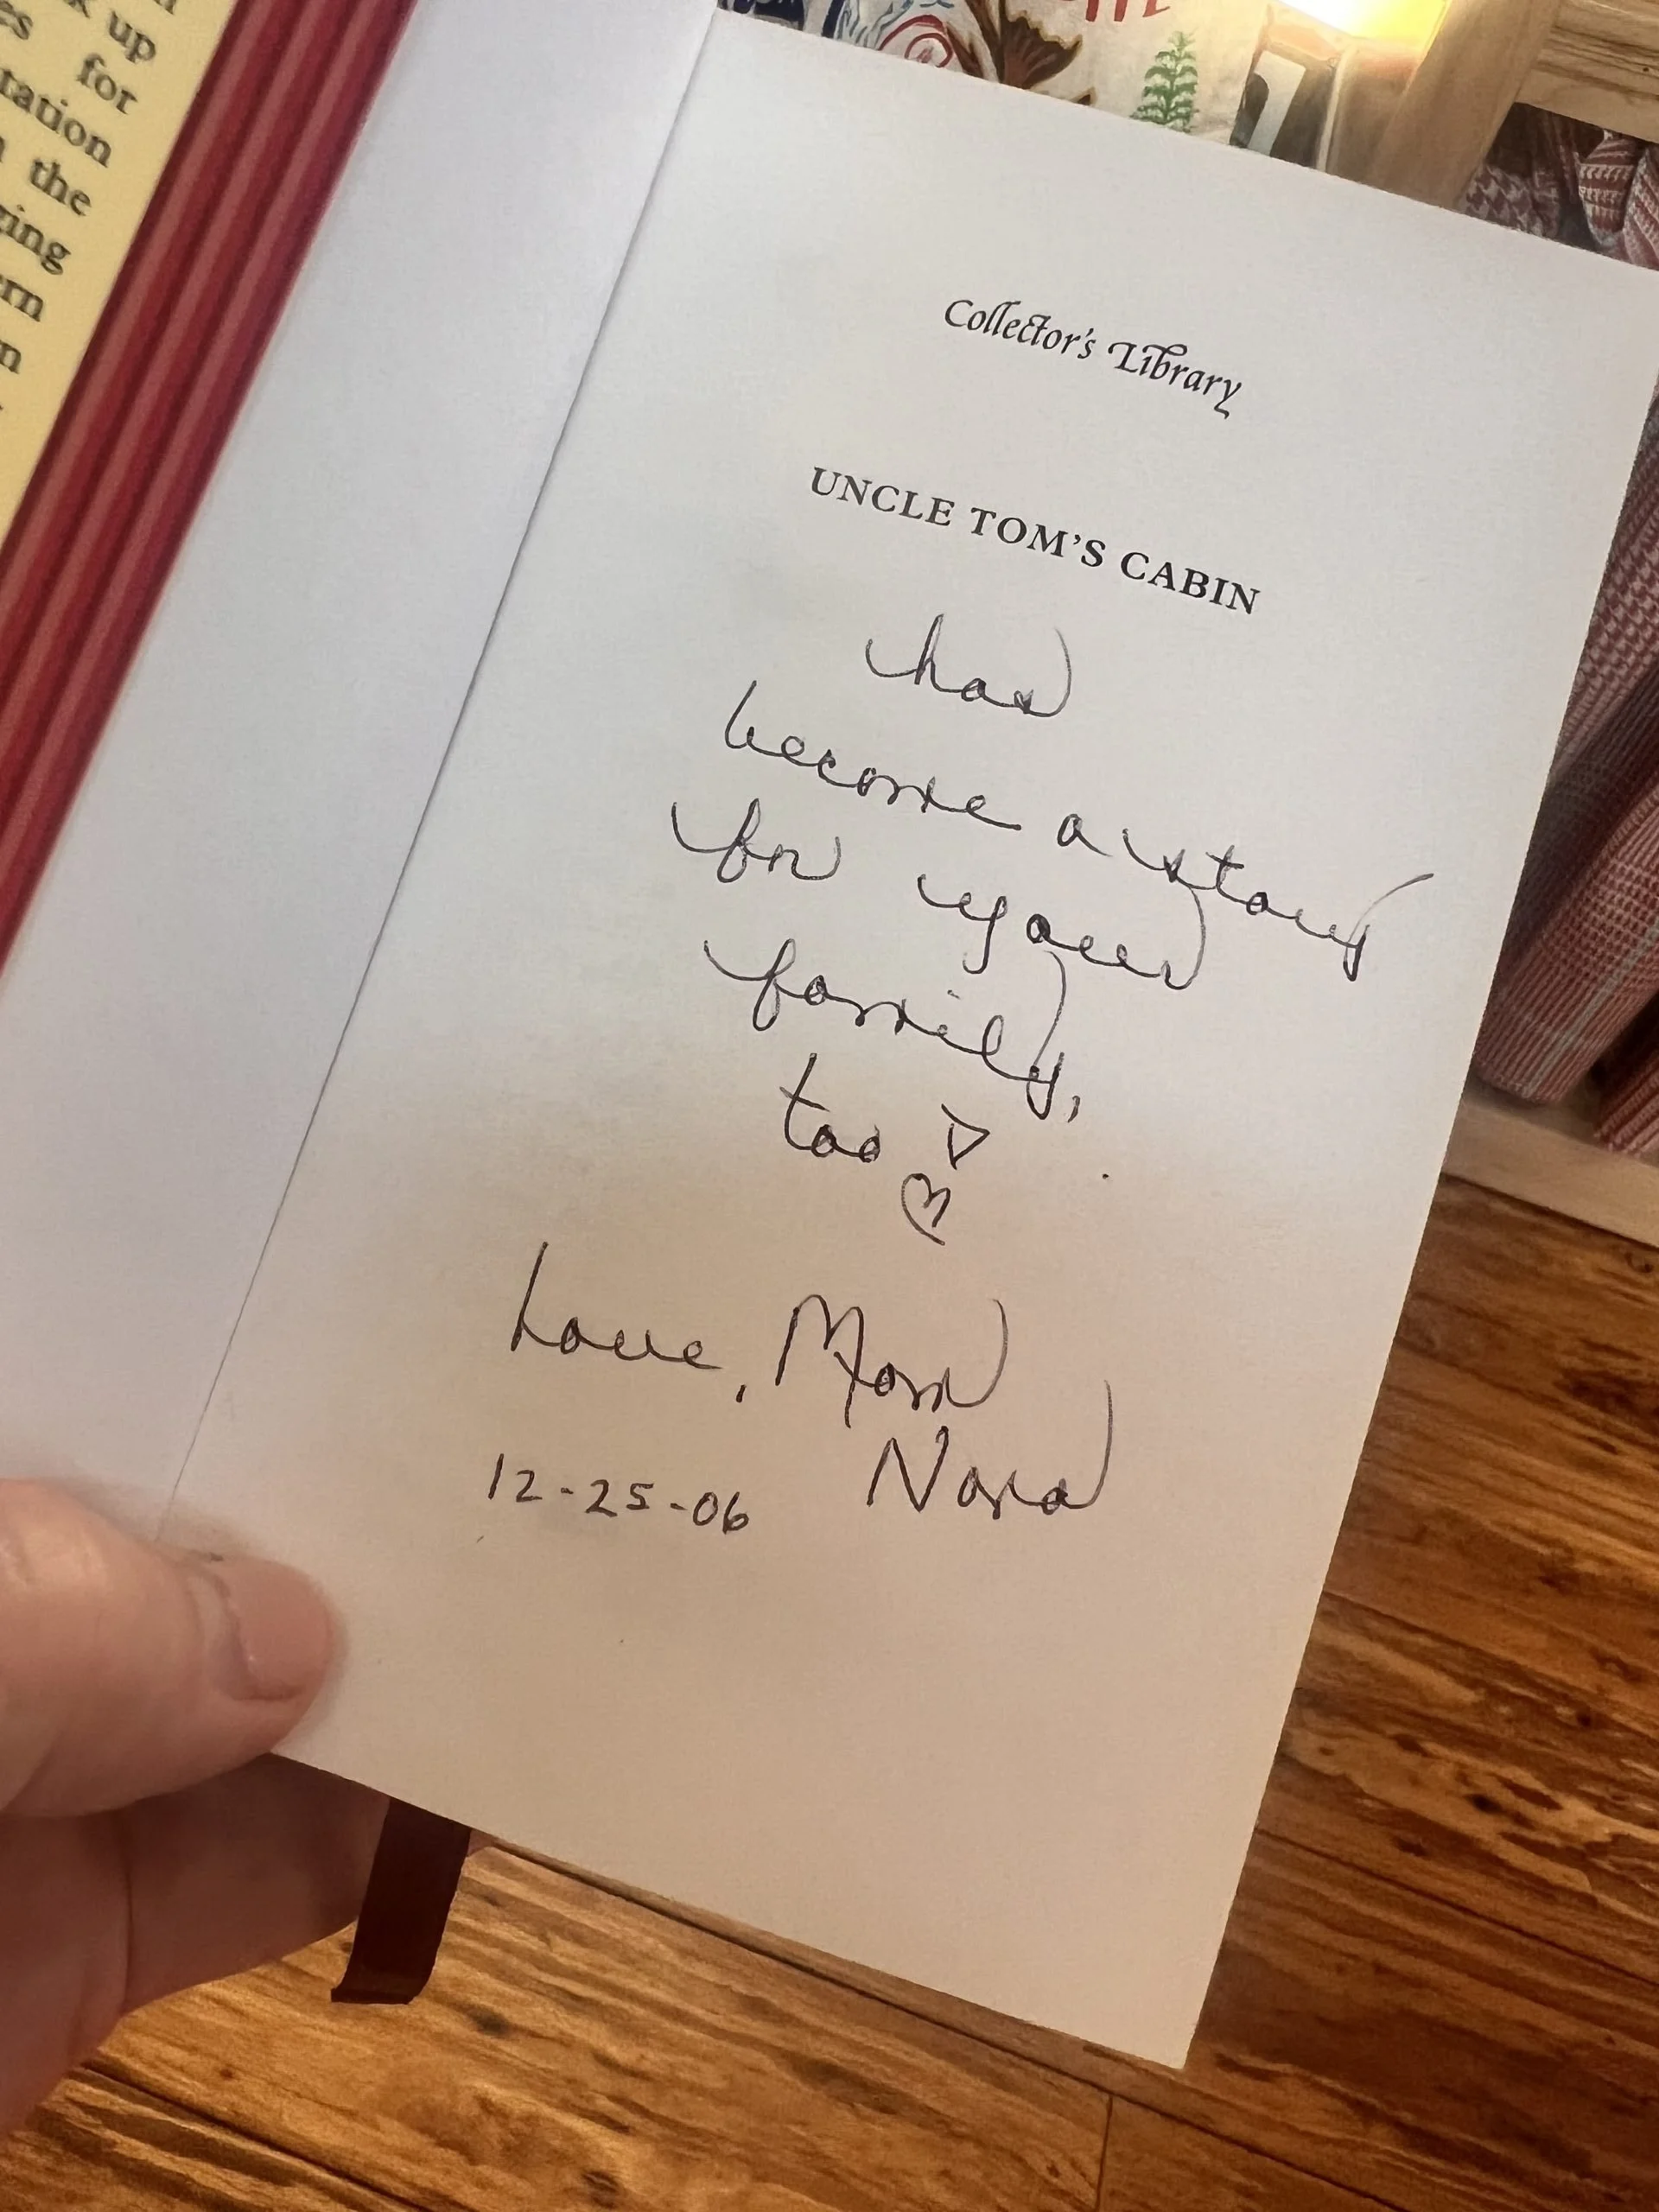 up
for
tation
the
ging
ern
Collector's Library
UNCLE TOM'S CABIN
has
become a story
for your
family,
too
Love, Mom
Nana
12-25-06